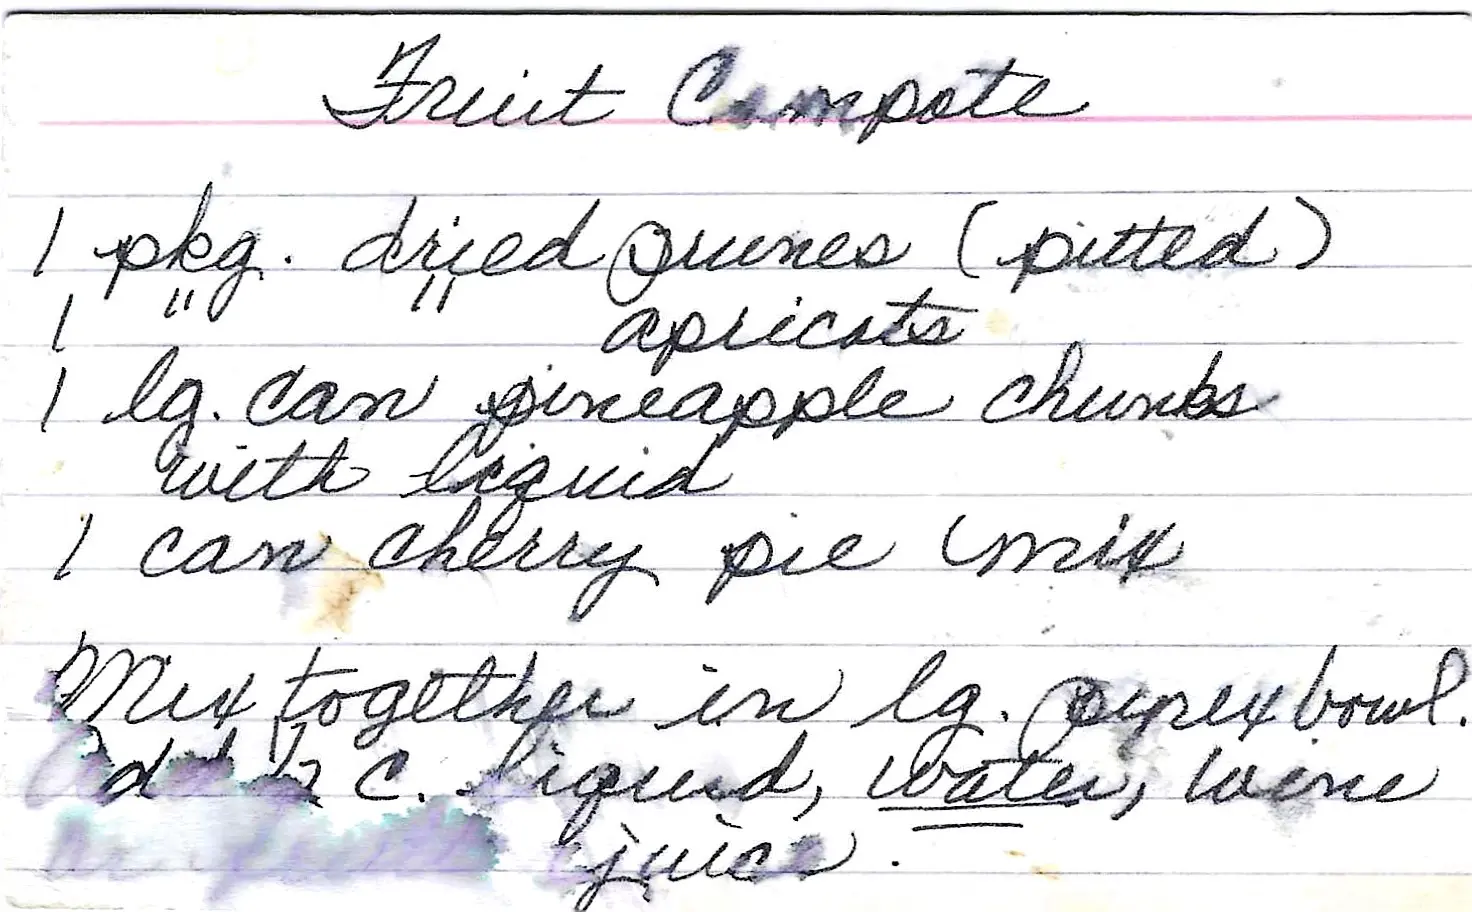 Fruit Compote
1 pkg. dried prunes (pitted)
1 " " apricots
1 lg. can pineapple chunks
with liquid
1 can cherry pie mix
Mix together in lg. pyrex bowl.
Add c. liquid, water, wine
juice.